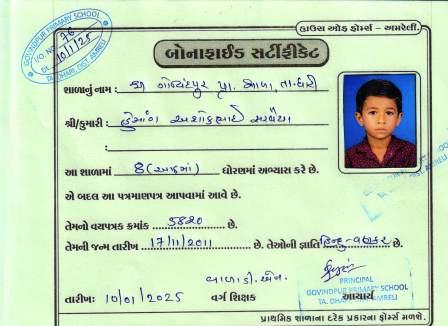 GOVINDPUR PRIMARY SCHOOL
I/O. NO. 76
DT. 10/1/25
TA. DHARI, DIST. AMRELI
હાઉસ ઓફ ફોર્મ્સ - અમરેલી.
બોનાફાઈડ સર્ટીફીકેટ
શાળાનું નામ : શ્રી ગોવિંદપુર પ્રા. શાળા, તા. ધારી
શ્રી/કુમારી : હેમાંગ અશોકભાઈ
આ શાળામાં 8 (આઠમાં) ધોરણમાં અભ્યાસ કરે છે.
એ બદલ આ પત્રમાણપત્ર આપવામાં આવે છે.
તેમનો વયપત્રક ક્રમાંક 5820 છે.
તેમની જન્મ તારીખ 17/11/2011 છે. તેઓની જ્ઞાતિ હિન્દુ-વણકર છે.
વાળા ડી. એન.
તારીખ: 10/01/2025 વર્ગ શિક્ષક આચાર્ય
PRINCIPAL
GOVINDPUR PRIMARY SCHOOL
TA. DHARI, AMRELI
પ્રાથમિક શાળાના દરેક પ્રકારના ફોર્મ્સ મળશે.